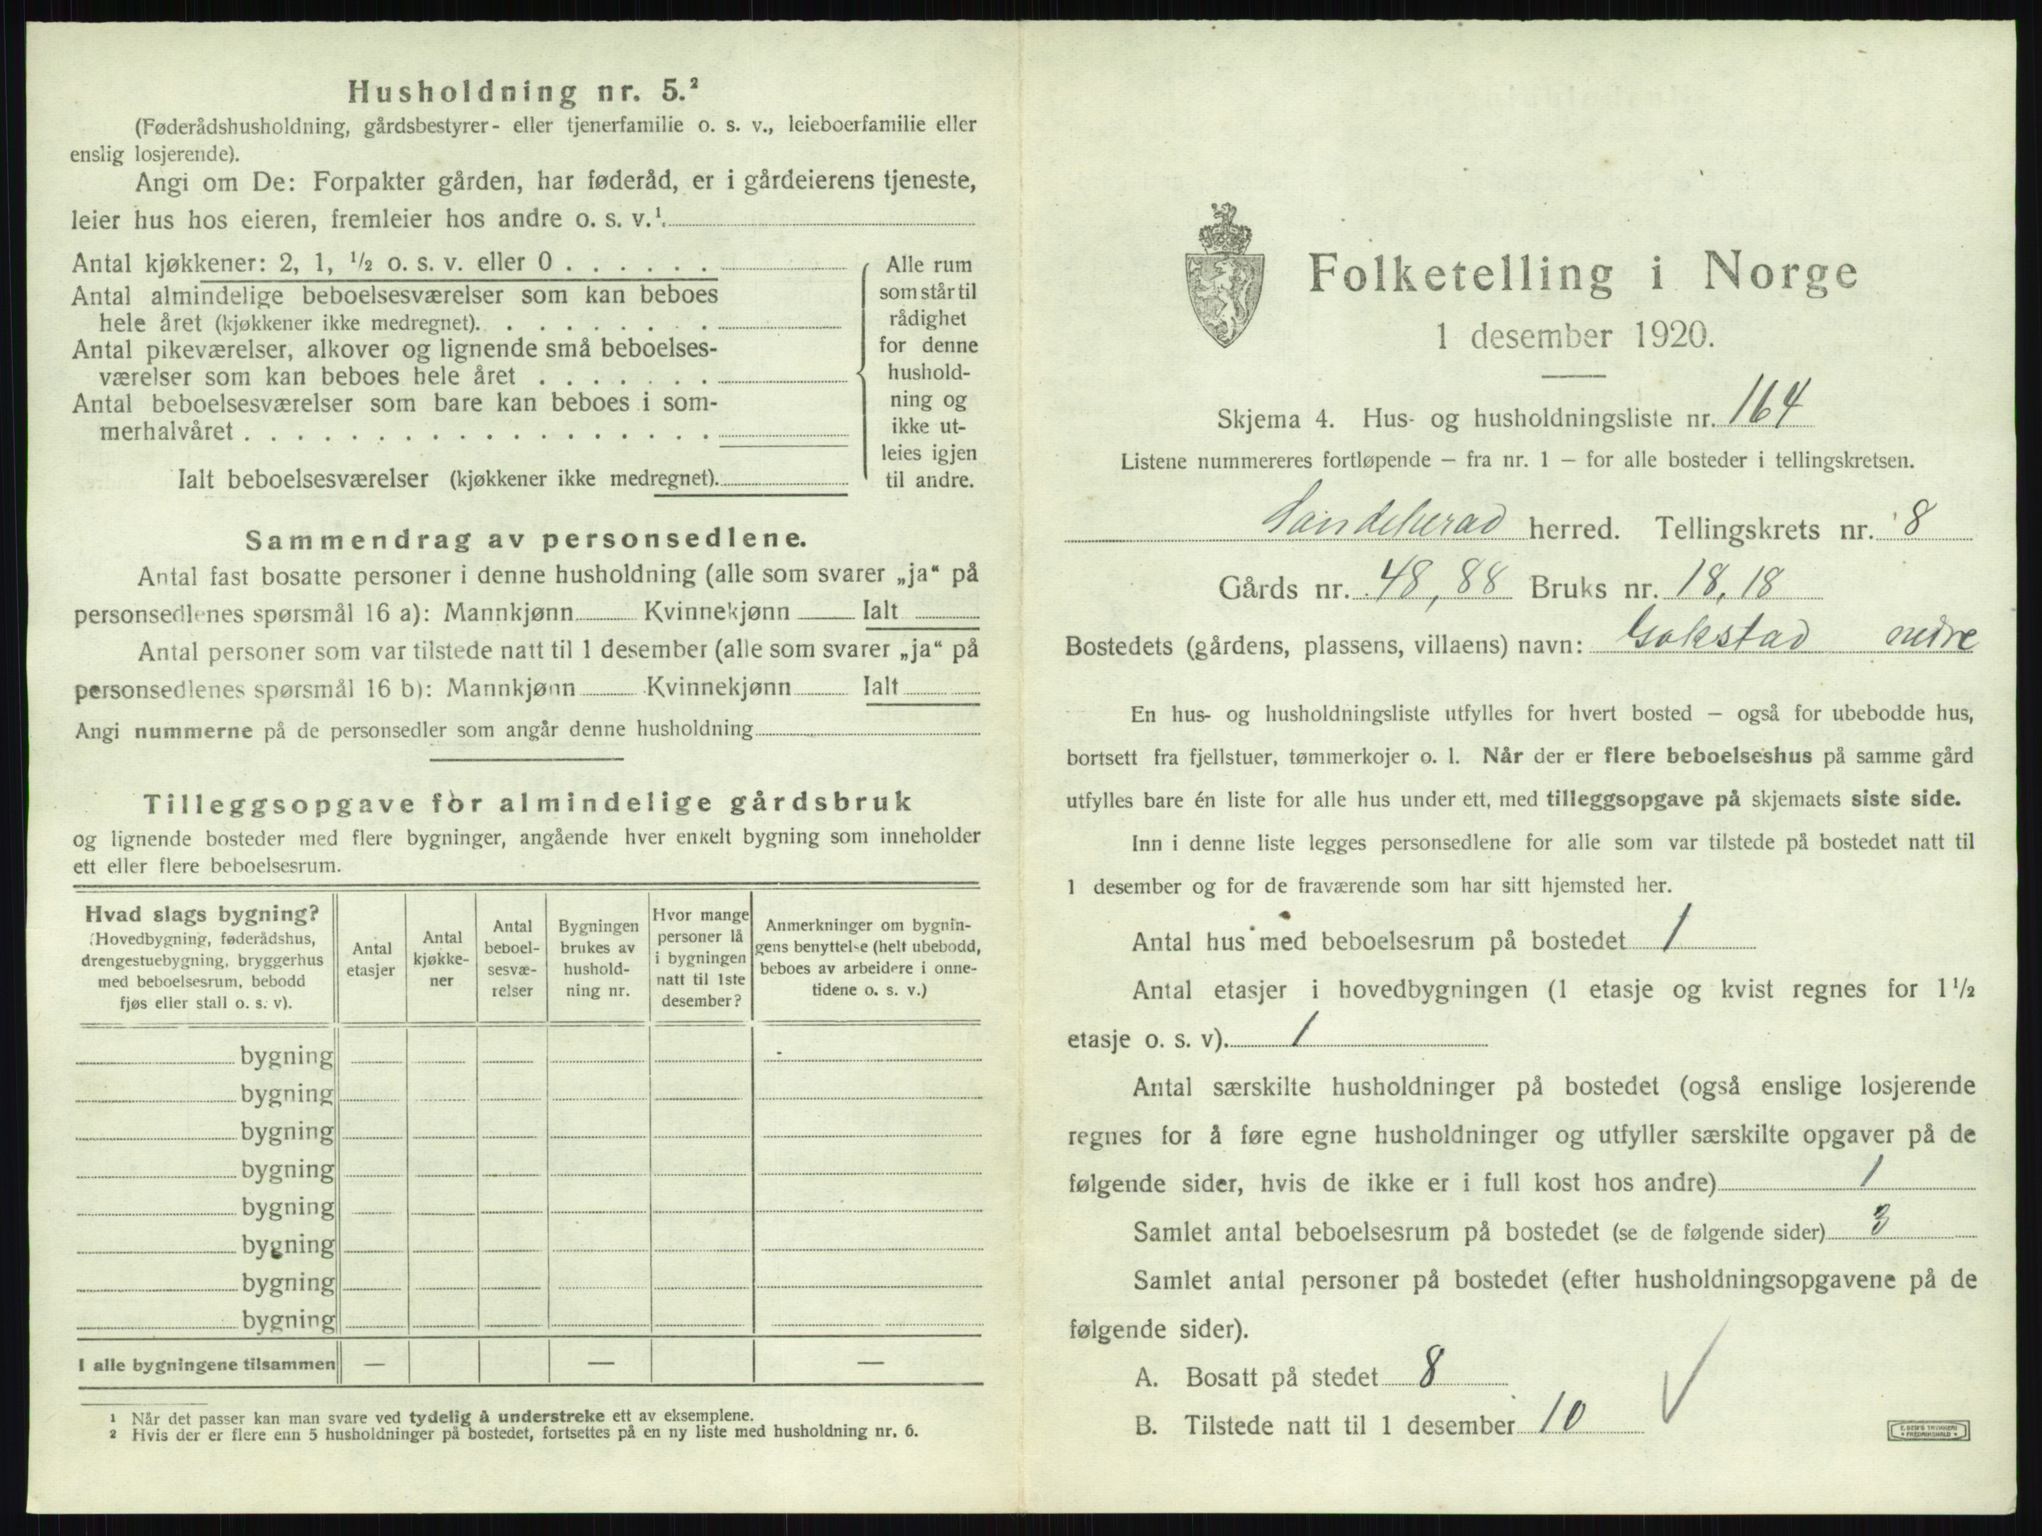 Husholdning nr. 5.²
(Føderådshusholdning, gårdsbestyrer- eller tjenerfamilie o. s. v., leieboerfamilie eller
enslig losjerende).
Angi om De: Forpakter gården, har føderåd, er i gårdeierens tjeneste,
leier hus hos eieren, fremleier hos andre o. s. v.¹.
Antal kjøkkener: 2, 1, ½ o. s. v. eller 0 . . . . . .
Antal almindelige beboelsesværelser som kan beboes
hele året (kjøkkener ikke medregnet). . . . . . . . .
Antal pikeværelser, alkover og lignende små beboelses-
værelser som kan beboes hele året . . . . . . .
Antal beboelsesværelser som bare kan beboes i som-
merhalvåret . . . . . . . . . . . . . . . . . .
Ialt beboelsesværelser (kjøkkener ikke medregnet).
Alle rum
som står til
rådighet
for denne
hushold-
ning og
ikke ut-
leies igjen
til andre.
Sammendrag av personsedlene.
Antal fast bosatte personer i denne husholdning (alle som svarer „ja“ på
personsedlenes spørsmål 16 a): Mannkjønn Kvinnekjønn Ialt
Antal personer som var tilstede natt til 1 desember (alle som svarer „ja“ på
personsedlenes spørsmål 16 b): Mannkjønn Kvinnekjønn Ialt
Angi nummerne på de personsedler som angår denne husholdning
Tilleggsopgave for almindelige gårdsbruk
og lignende bosteder med flere bygninger, angående hver enkelt bygning som inneholder
ett eller flere beboelsesrum.
Hvad slags bygning?
(Hovedbygning, føderådshus,
drengestuebygning, bryggerhus
med beboelsesrum, bebodd
fjøs eller stall o. s. v).
Antal
etasjer
Antal
kjøkke-
ner
Antal
beboel-
sesvæ-
relser
Bygningen
brukes av
hushold-
ning nr.
Hvor mange
personer lå
i bygningen
natt til 1ste
desember?
Anmerkninger om bygnin-
gens benyttelse (helt ubebodd,
beboes av arbeidere i onne-
tidene o. s. v.)
bygning
bygning
bygning
bygning
bygning
bygning
bygning
bygning
I alle bygningene tilsammen — — —
¹ Når det passer kan man svare ved tydelig å understreke ett av eksemplene.
² Hvis der er flere enn 5 husholdninger på bostedet, fortsettes på en ny liste med husholdning nr. 6.
Folketelling i Norge
1 desember 1920.
Skjema 4. Hus- og husholdningsliste nr. 164
Listene nummereres fortløpende — fra nr. 1 — for alle bosteder i tellingskretsen.
Sandeherad herred. Tellingskrets nr. 8
Gårds nr. 48, 88 Bruks nr. 18, 18
Bostedets (gårdens, plassens, villaens) navn: Gokstad nedre
En hus- og husholdningsliste utfylles for hvert bosted — også for ubebodde hus,
bortsett fra fjellstuer, tømmerkojer o. l. Når der er flere beboelseshus på samme gård
utfylles bare én liste for alle hus under ett, med tilleggsopgave på skjemaets siste side.
Inn i denne liste legges personsedlene for alle som var tilstede på bostedet natt til
1 desember og for de fraværende som har sitt hjemsted her.
Antal hus med beboelsesrum på bostedet 1
Antal etasjer i hovedbygningen (1 etasje og kvist regnes for 1½
etasje o. s. v). 1
Antal særskilte husholdninger på bostedet (også enslige losjerende
regnes for å føre egne husholdninger og utfyller særskilte opgaver på de
følgende sider, hvis de ikke er i full kost hos andre) 1
Samlet antal beboelsesrum på bostedet (se de følgende sider) 3
Samlet antal personer på bostedet (efter husholdningsopgavene på de
følgende sider).
A. Bosatt på stedet 8
B. Tilstede natt til 1 desember 10